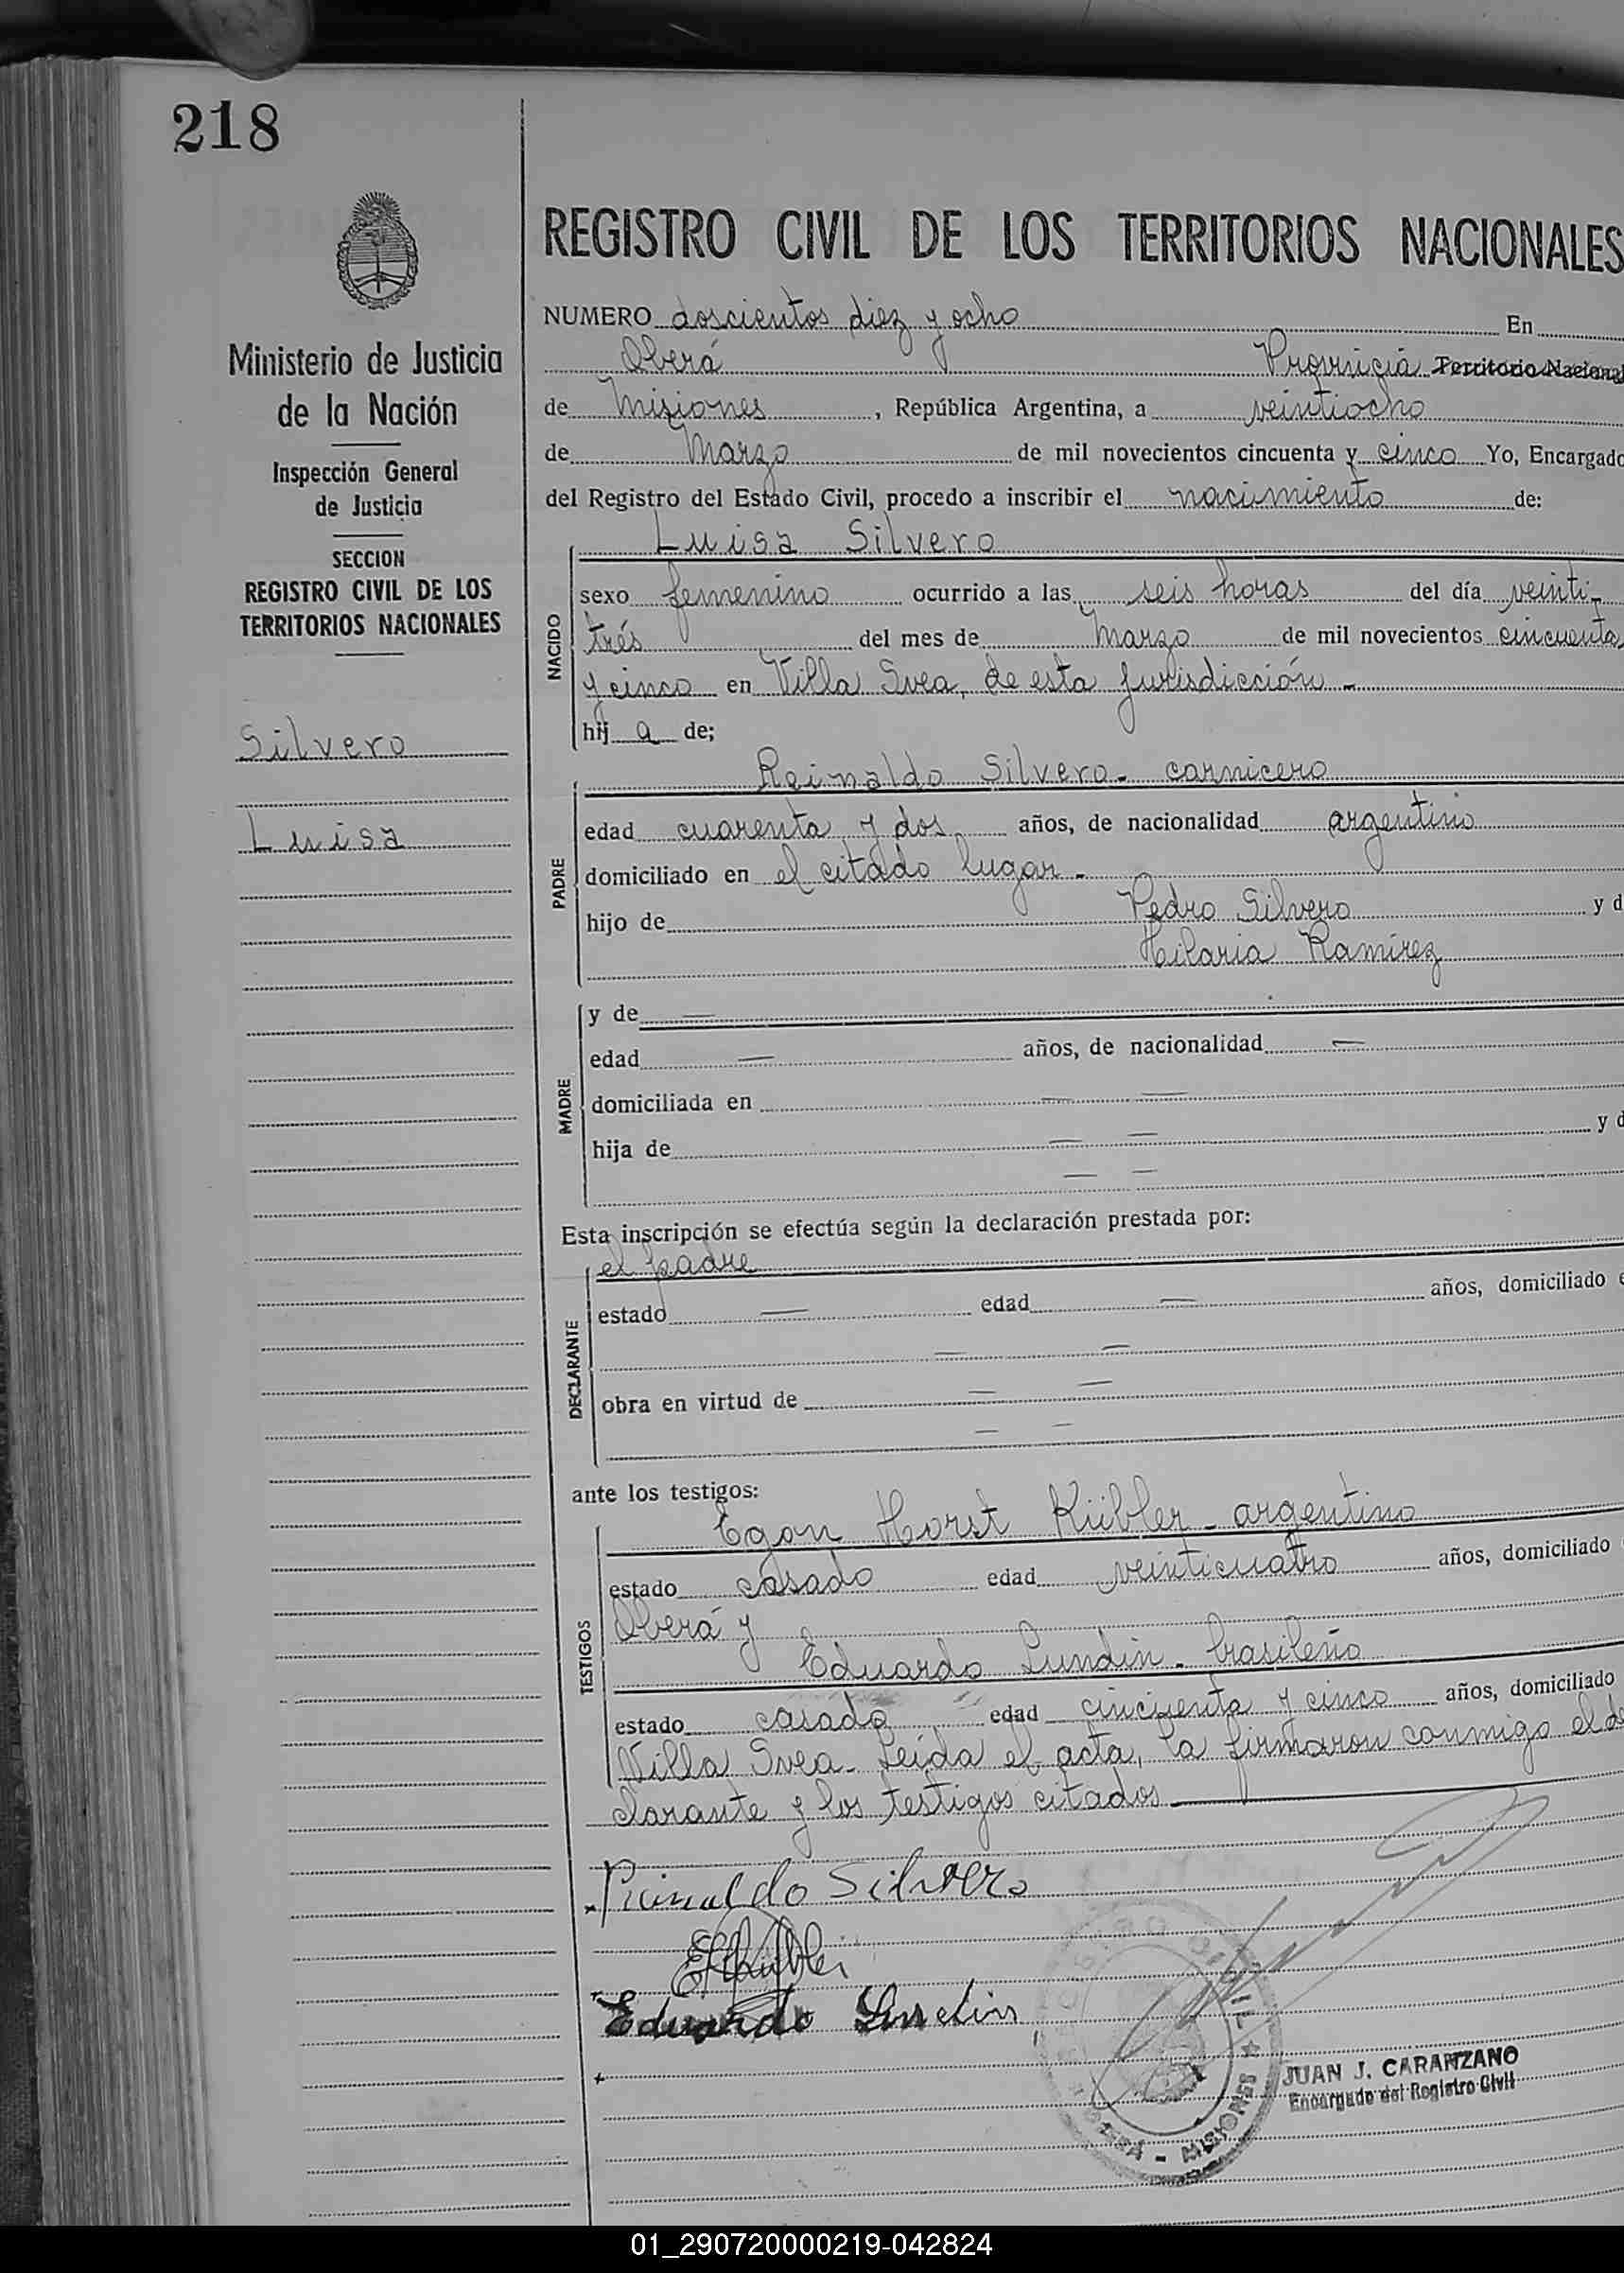 218
REGISTRO CIVIL DE LOS TERRITORIOS NACIONALES
Ministerio de Justicia
de la Nación
Inspección General
de Justicia
SECCION
REGISTRO CIVIL DE LOS
TERRITORIOS NACIONALES
Silvero
Luisa
NUMERO doscientos diez y ocho En
Oberá Provincia Territorio Nacional
de Misiones, República Argentina, a veintiocho
de Marzo de mil novecientos cincuenta y cinco Yo, Encargado
del Registro del Estado Civil, procedo a inscribir el nacimiento de:
NACIDO
Luisa Silvero
sexo femenino ocurrido a las seis horas del día veinti-
trés del mes de Marzo de mil novecientos cincuenta
y cinco en Villa Svea, de esta jurisdicción -
hij a de;
PADRE
Reinaldo Silvero - carnicero
edad cuarenta y dos años, de nacionalidad argentino
domiciliado en el citado lugar -
hijo de Pedro Silvero y d
Hilaria Ramírez
MADRE
y de —
edad — años, de nacionalidad —
domiciliada en — —
hija de — — y d
— —
Esta inscripción se efectúa según la declaración prestada por:
DECLARANTE
el padre
estado — edad — años, domiciliado e
— —
obra en virtud de — —
— —
ante los testigos:
TESTIGOS
Egon Horst Kübler - argentino
estado casado edad veinticuatro años, domiciliado
Oberá y
Eduardo Lundin - brasileño
estado casado edad cincuenta y cinco años, domiciliado
Villa Svea - Leída el acta, la firmaron conmigo el de
clarante y los testigos citados —
Reinaldo Silvero
EHKübler
Eduardo Lundin
REGISTRO CIVIL
OBERÁ - MISIONES
JUAN J. CARANZANO
Encargado del Registro Civil
01_290720000219-042824